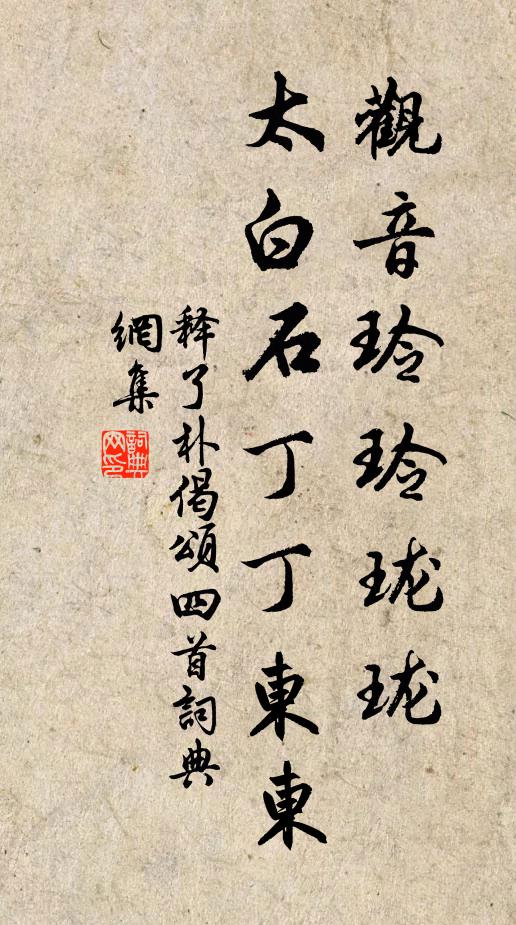 觀音玲玲珑珑
太白石丁丁東東
释了朴偈頌四首詞典
網集
詞典網印